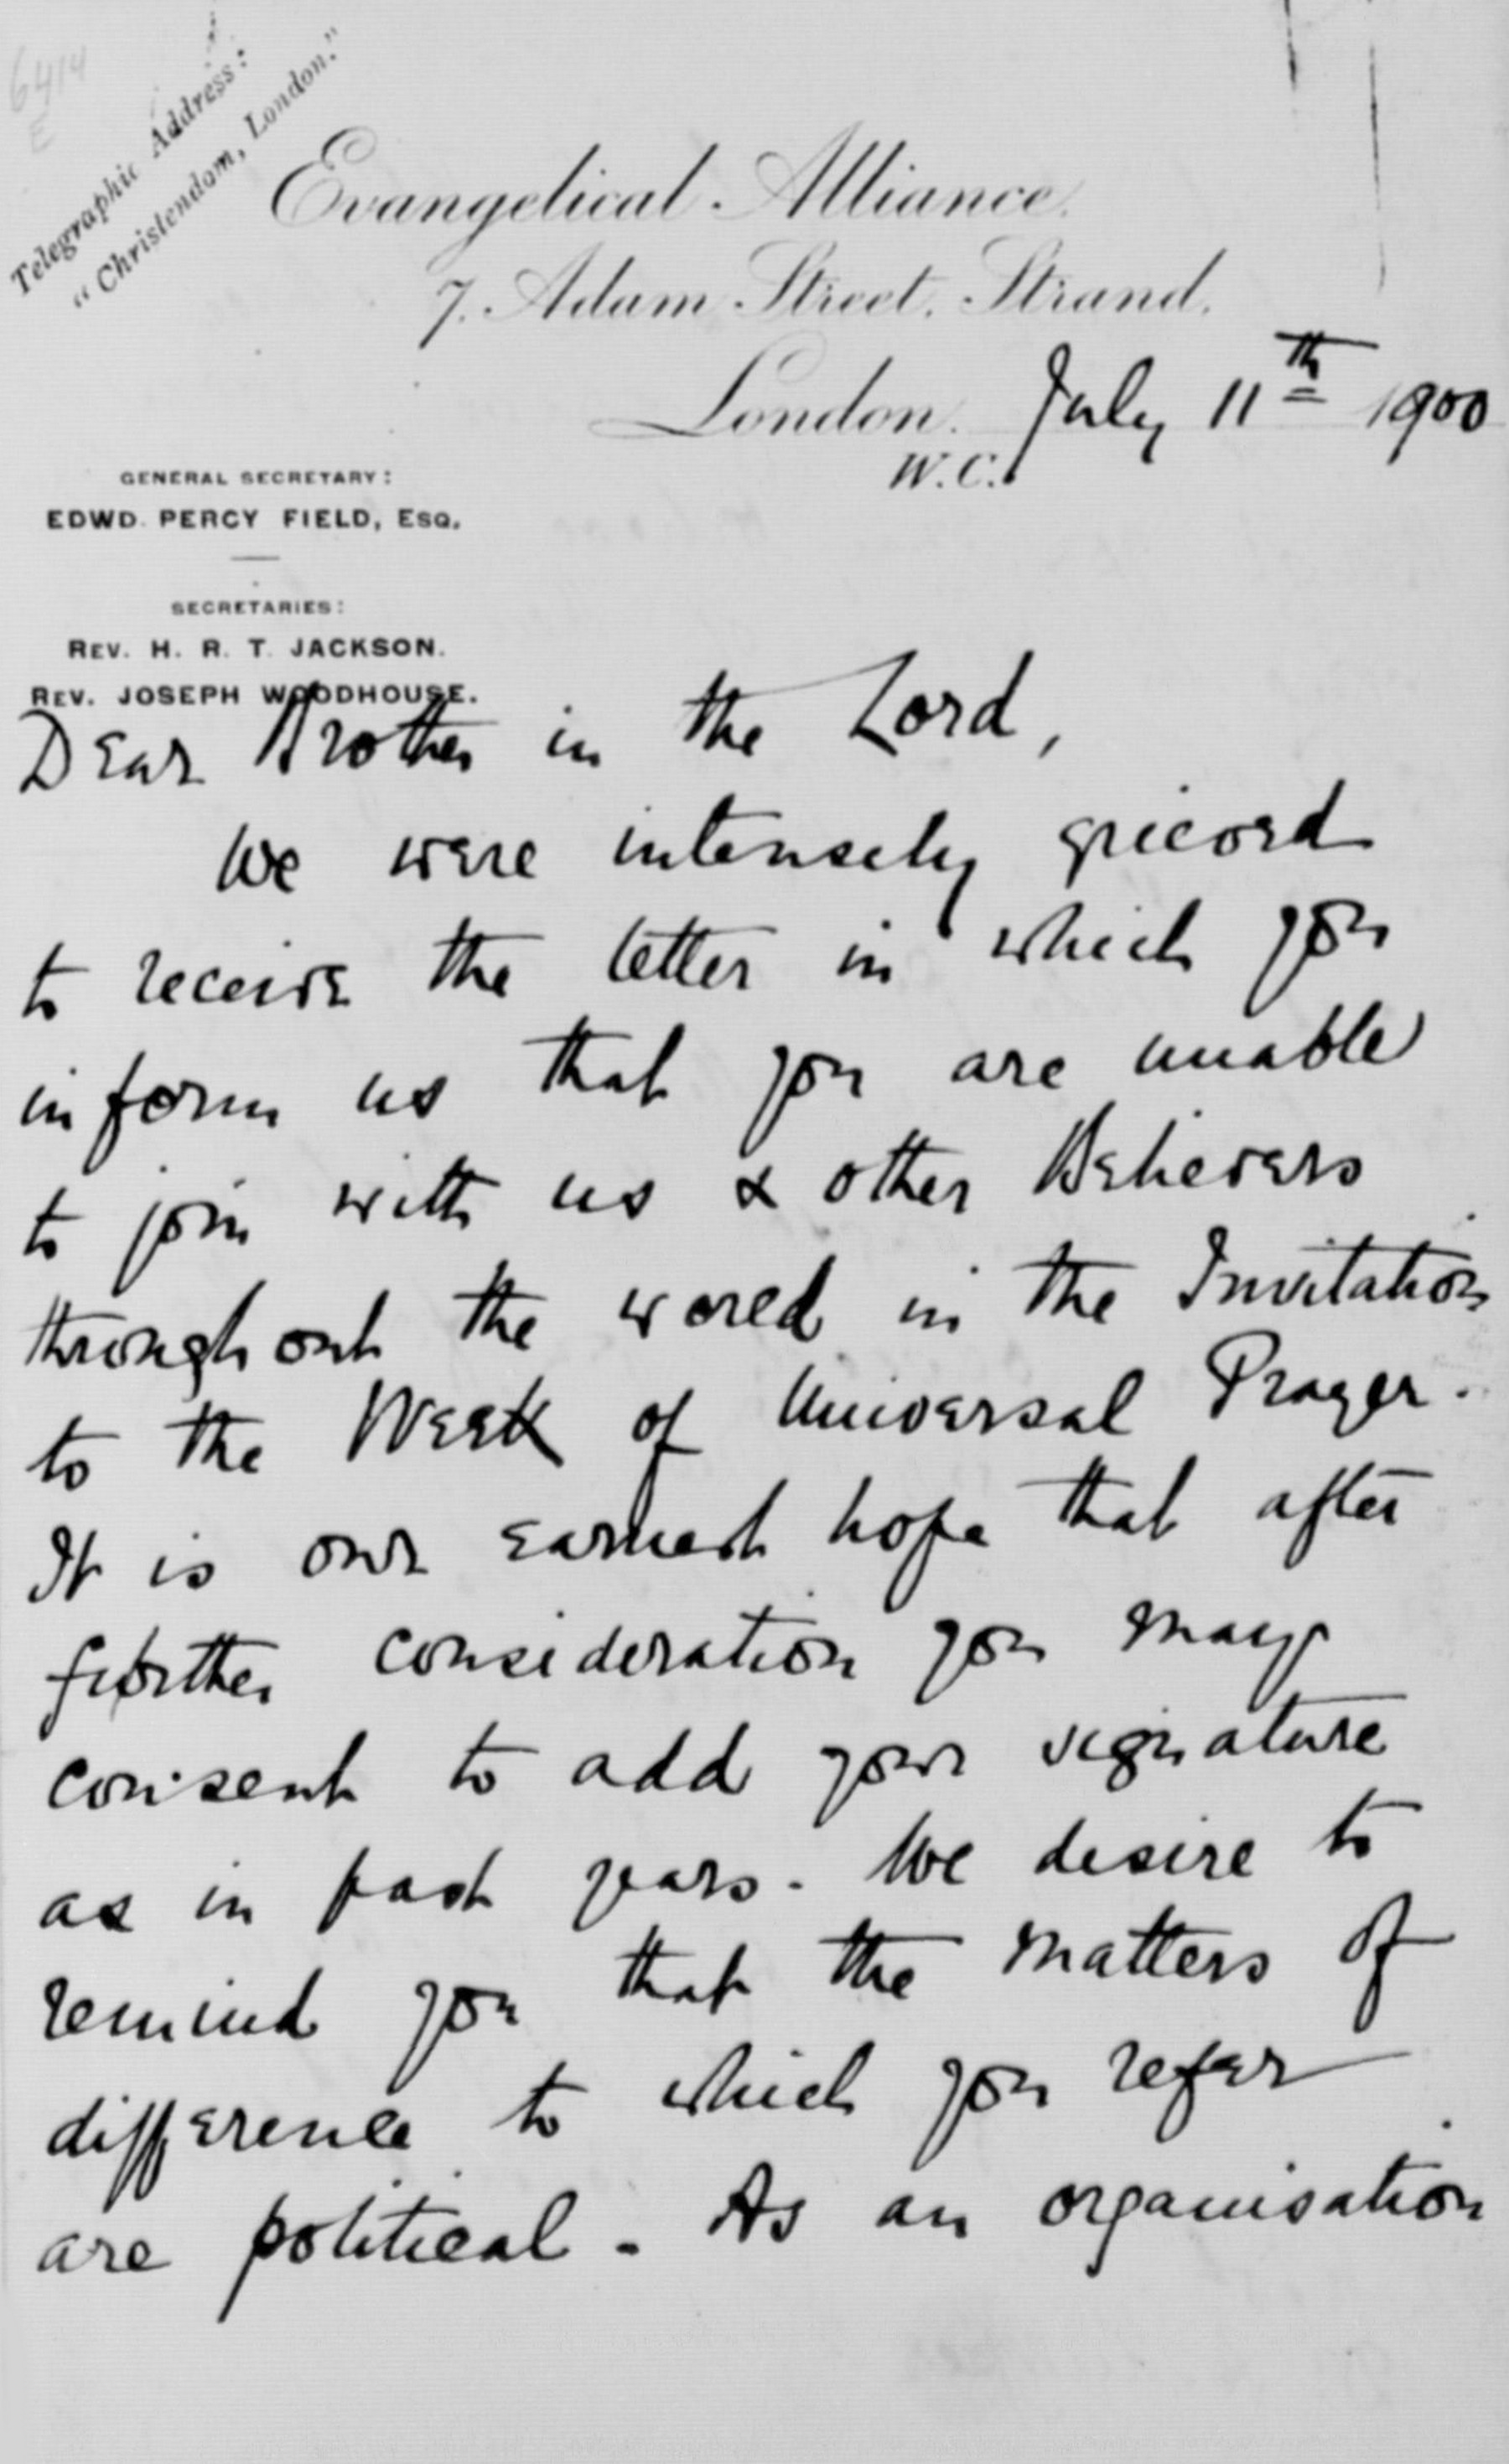 6414
E
Telegraphic Address:
"Christendom, London."
Evangelical Alliance.
7. Adam Street, Strand,
London. July 11th 1900
W.C.
GENERAL SECRETARY:
EDWD. PERCY FIELD, ESQ.
SECRETARIES:
REV. H. R. T. JACKSON.
REV. JOSEPH WOODHOUSE.
Dear Brother in the Lord,
We were intensely grieved
to receive the letter in which you
inform us that you are unable
to join with us & other Believers
throughout the world in the Invitation
to the Week of Universal Prayer.
It is our earnest hope that after
further consideration you may
consent to add your signature
as in past years. We desire to
remind you that the matters of
difference to which you refer
are political. As an organisation